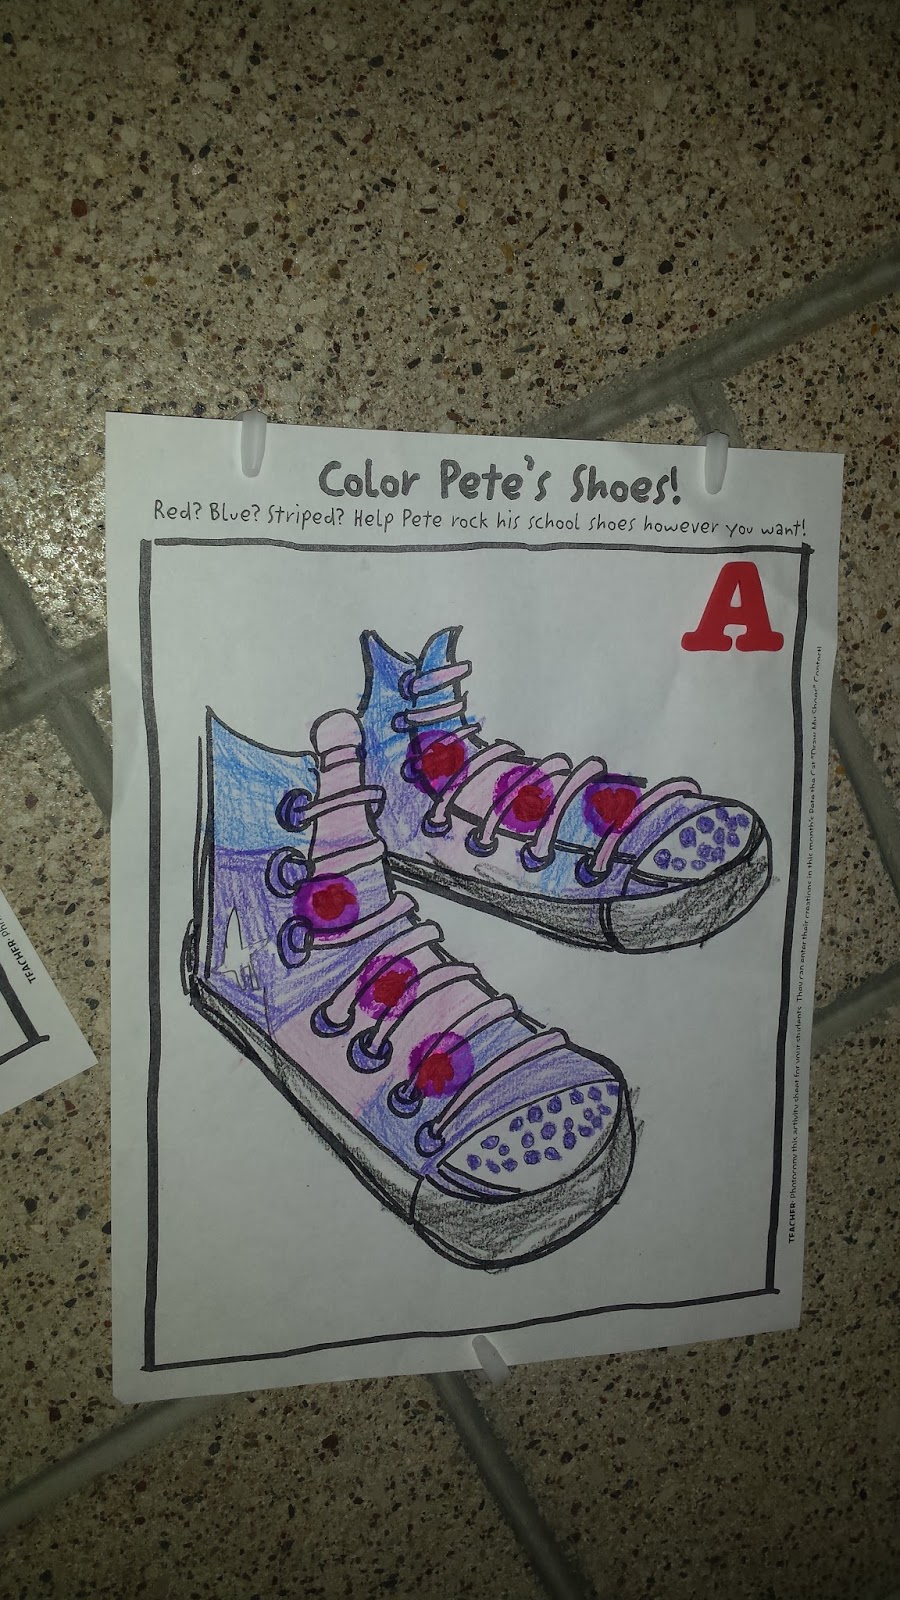 Color Pete's Shoes!
Red? Blue? Striped? Help Pete rock his school shoes however you want!
A
TEACHER: Photocopy this activity sheet for your students. They can enter their creations in this month's Pete the Cat "Draw My Shoes" Contest!
TEACHER: